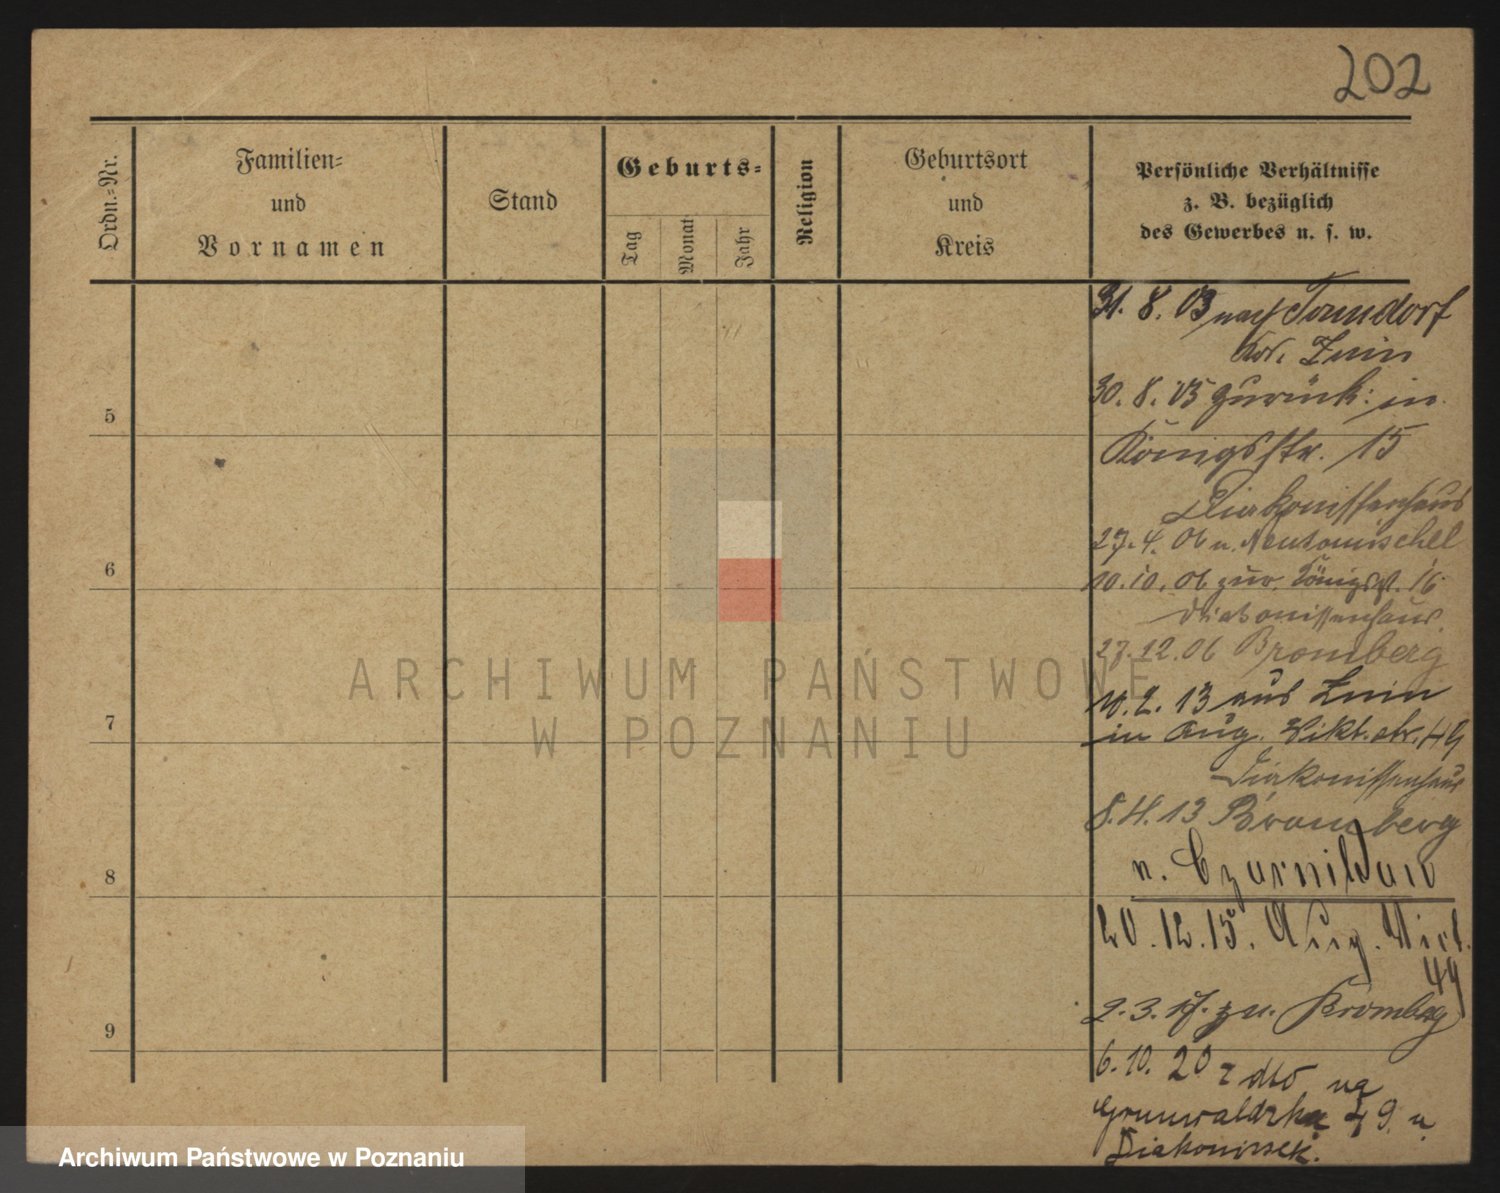 202
Ordn.-Nr.
Familien-
und
Vornamen
Stand
Geburts-
Tag
Monat
Jahr
Religion
Geburtsort
und
Kreis
Persönliche Verhältnisse
z. B. bezüglich
des Gewerbes u. s. w.
31. 8. 03 nach Tonndorf
Kr. Znin
30. 8. 05 zurück: in
5
Königsstr. 15
Diakonissenhaus
27. 4. 06 n. Neutomischel
6
10. 10. 06 zur. Königst. 16
Diakonissenhaus.
27. 12. 06 Bromberg
ARCHIWUM PAŃSTWOWE
W POZNANIU
10. 2. 13 aus Znin
7
in Aug. Vikt. str. 49
Diakonissenhaus
8. 4. 13 Bromberg
8
n. Czarnikau
20. 12. 15. Aug. Vict.
49
2. 3. 17. zu. Bromberg
9
6. 10. 20 z dto na
Grunwaldzka 49 u
Diakonissek.
Archiwum Państwowe w Poznaniu